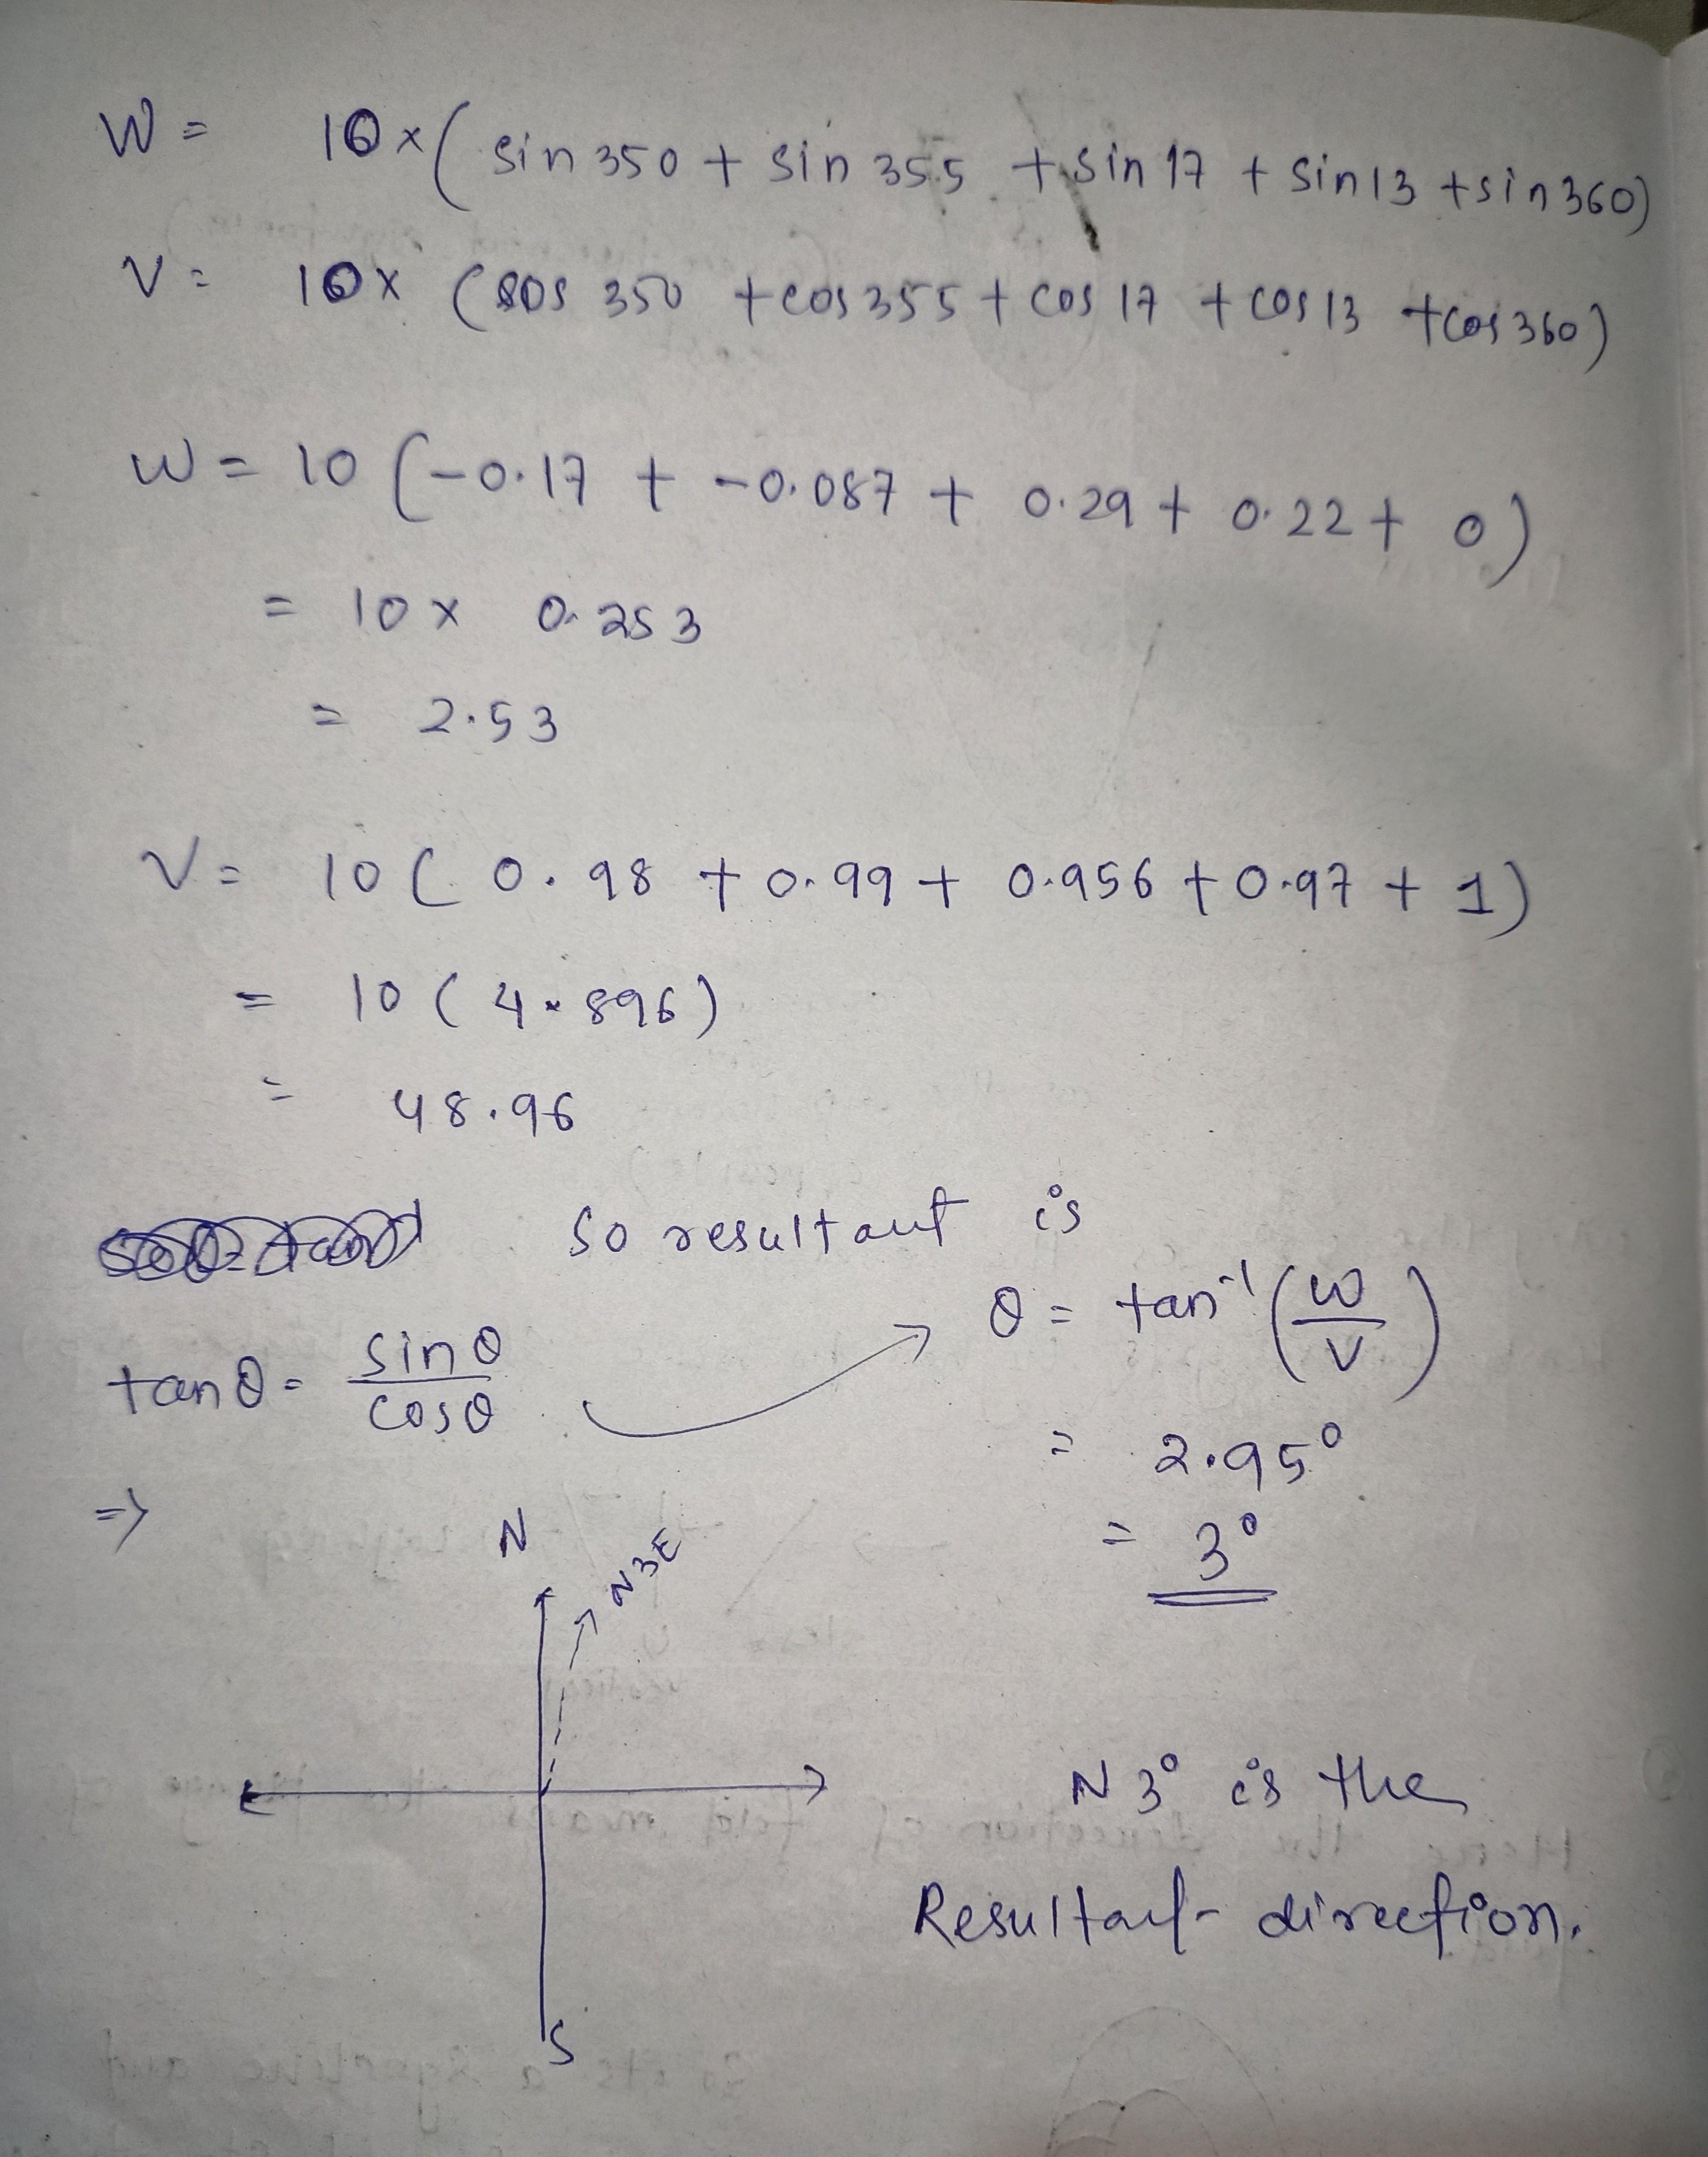 W = 10 x ( sin 350 + sin 355 + sin 17 + sin 13 + sin 360)
V = 10 x (cos 350 + cos 355 + cos 17 + cos 13 + cos 360)
W = 10 (-0.17 + -0.087 + 0.29 + 0.22 + 0)
= 10 x 0.253
= 2.53
V = 10 ( 0.98 + 0.99 + 0.956 + 0.97 + 1)
= 10 ( 4.896)
= 48.96
So resultant is
θ = tan⁻¹ (W/V)
tan θ = sin θ / cos θ
= 2.95°
=>
= 3°
N
N3E
N 3° is the
Resultant direction.
S